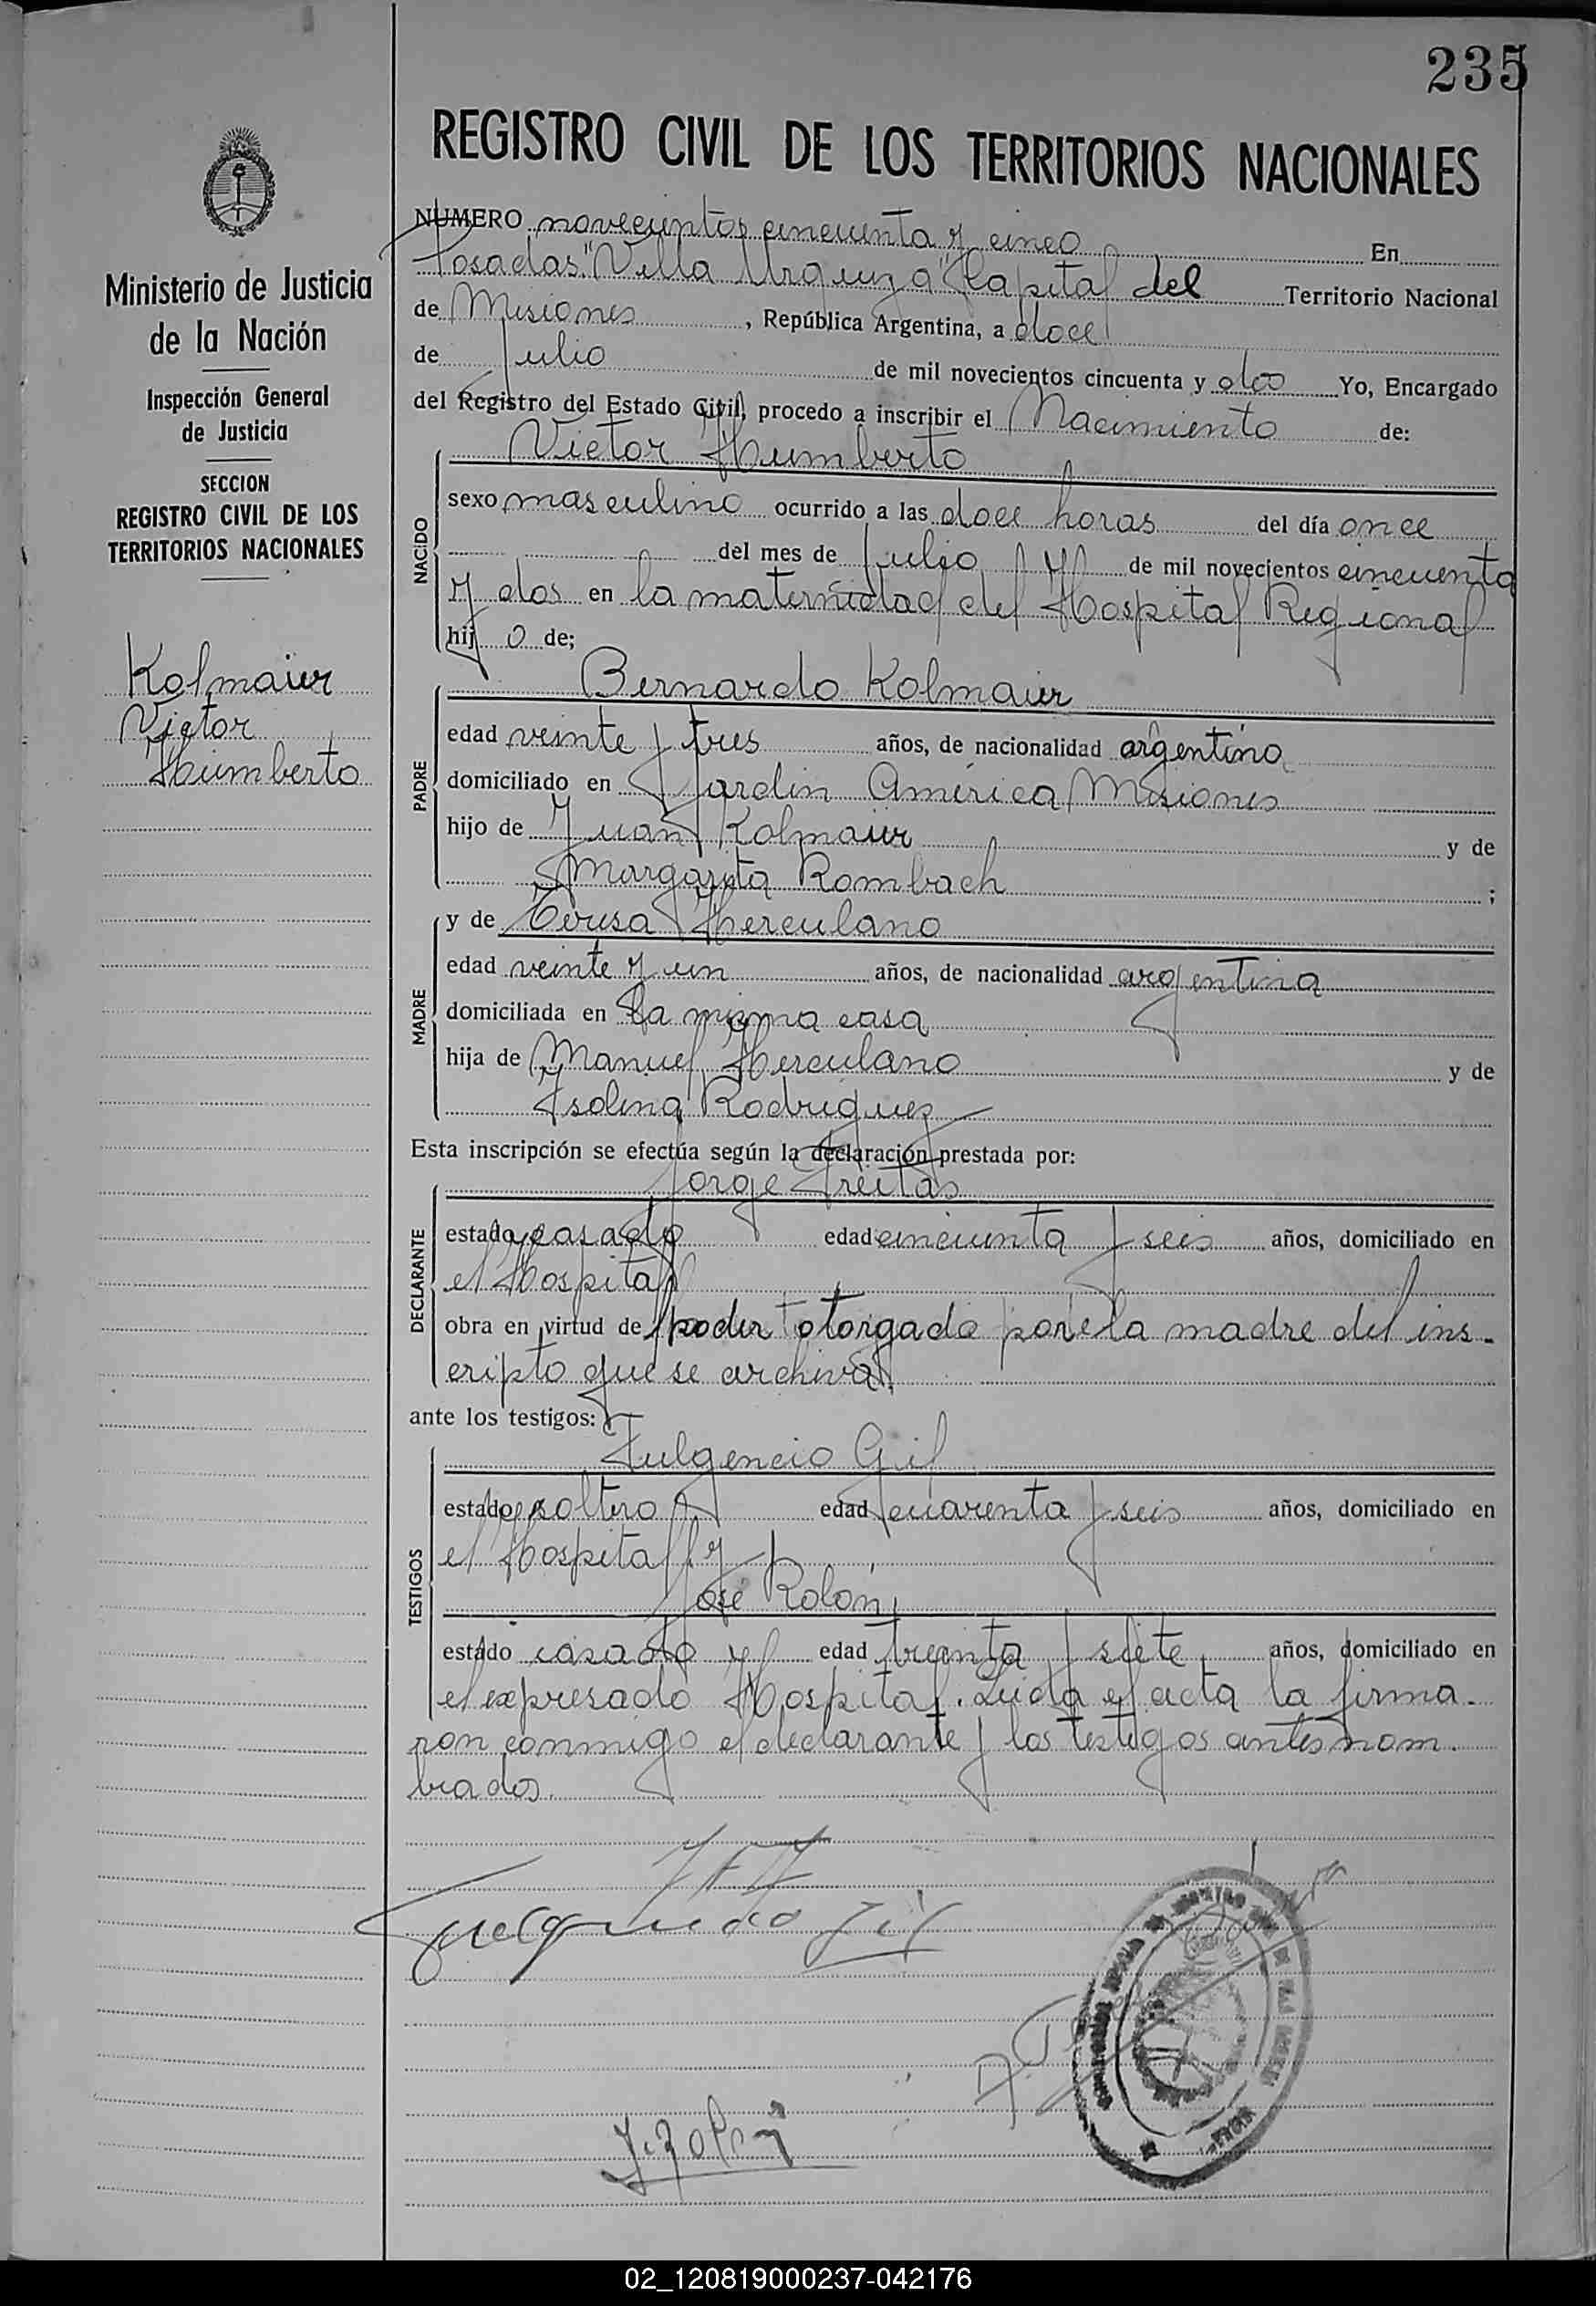 235
REGISTRO CIVIL DE LOS TERRITORIOS NACIONALES
Ministerio de Justicia
de la Nación
Inspección General
de Justicia
SECCION
REGISTRO CIVIL DE LOS
TERRITORIOS NACIONALES
Kolmaier
Victor
Humberto
NUMERO novecientos cincuenta y cinco En
Posadas "Villa Urquiza" Capital del Territorio Nacional
de Misiones, República Argentina, a doce
de Julio de mil novecientos cincuenta y dos Yo, Encargado
del Registro del Estado Civil, procedo a inscribir el Nacimiento de:
Victor Humberto
NACIDO
sexo masculino ocurrido a las doce horas del día once
del mes de Julio de mil novecientos cincuenta
y dos en la maternidad del Hospital Regional
hijo de;
Bernardo Kolmaier
PADRE
edad veinte y tres años, de nacionalidad argentino
domiciliado en Jardin América Misiones
hijo de Juan Kolmaier y de
Margarita Rombach ;
y de Teresa Herculano
MADRE
edad veinte y un años, de nacionalidad argentina
domiciliada en la misma casa
hija de Manuel Herculano y de
Isolina Rodriguez
Esta inscripción se efectúa según la declaración prestada por:
Jorge Freitas
DECLARANTE
estado casado edad cincuenta y seis años, domiciliado en
el Hospital
obra en virtud de poder otorgado por la madre del ins-
cripto que se archiva.
ante los testigos:
Fulgencio Gil
TESTIGOS
estado soltero edad cuarenta y seis años, domiciliado en
el Hospital y
José Rolón
estado casado edad treinta y siete años, domiciliado en
el expresado Hospital. Leida el acta la firma-
ron conmigo el declarante y los testigos antes nom-
brados.
Fulgencio Gil
J. Rolón
02_120819000237-042176